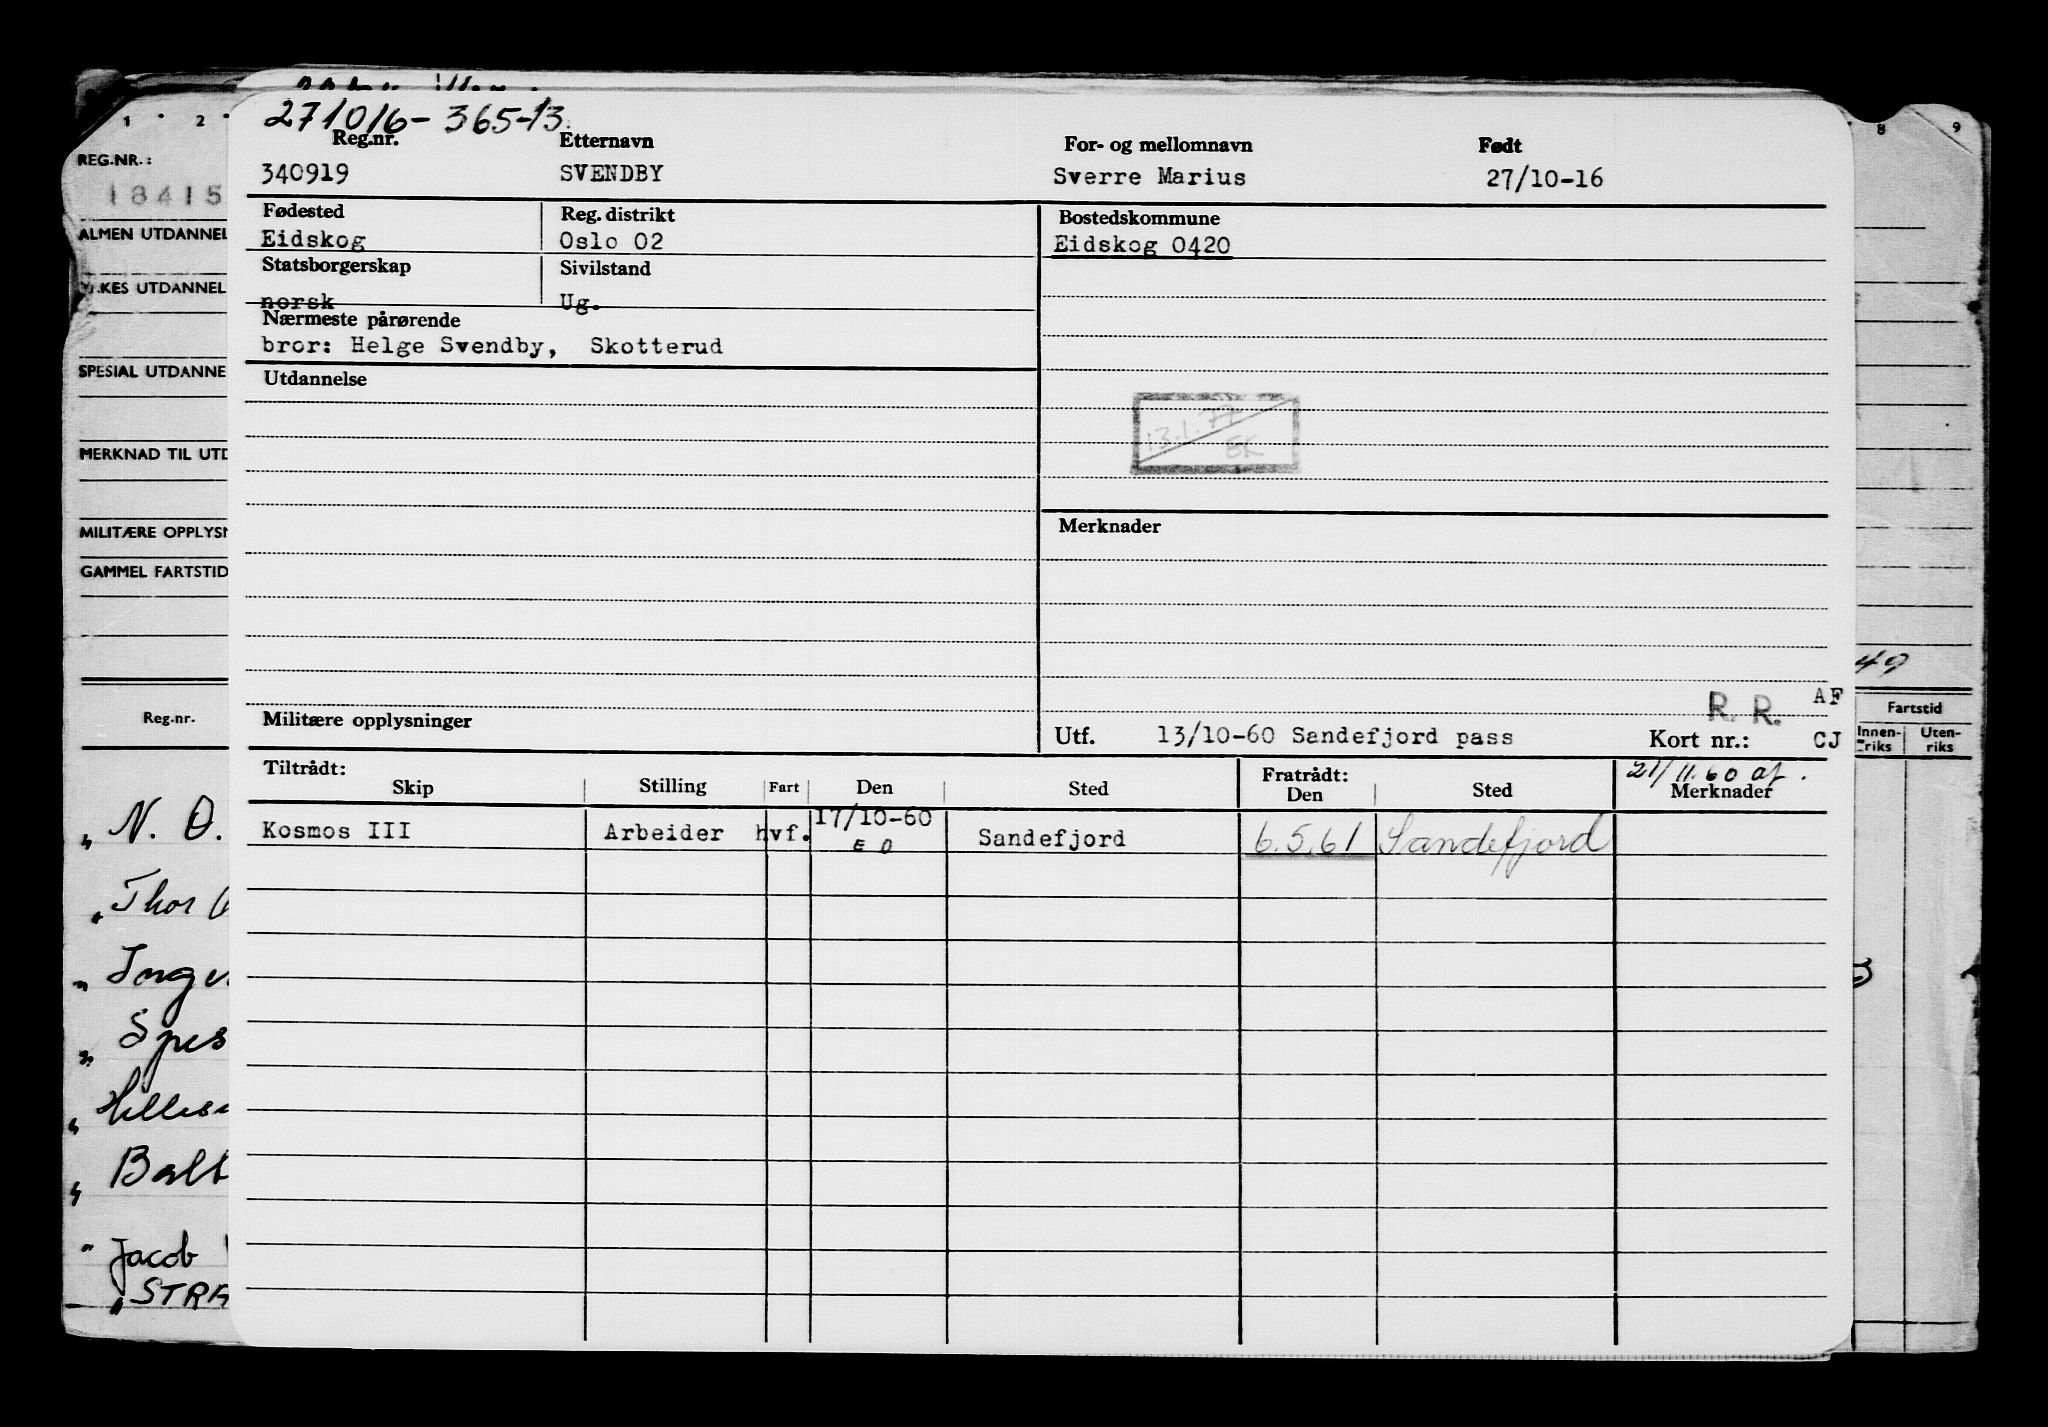 271016-365-13.
Reg.nr. Etternavn For- og mellomnavn Født
340919 SVENDBY Sverre Marius 27/10-16
Fødested Reg. distrikt Bostedskommune
Eidskog Oslo 02 Eidskog 0420
Statsborgerskap Sivilstand
norsk Ug.
Nærmeste pårørende
bror: Helge Svendby, Skotterud
Utdannelse
13.1.77
EK
Merknader
R. R. AF
Militære opplysninger
Utf. 13/10-60 Sandefjord pass Kort nr.: CJ
Tiltrådt: Fratrådt: 21/11.60 af.
Skip Stilling Fart Den Sted Den Sted Merknader
Kosmos III Arbeider hvf. 17/10-60 Sandefjord 6.5.61 Sandefjord
E O
1 2
REG.NR.:
18415
ALMEN UTDANNEL
YRKES UTDANNEL
SPESIAL UTDANNE
MERKNAD TIL UTD
MILITÆRE OPPLYSN
GAMMEL FARTSTID
Reg.nr.
" N. O.
" Thor
" Inge
" Spes
"
" Balt
" Jacob
" STRA
8 9
49
Fartstid
Innen-riks Uten-riks